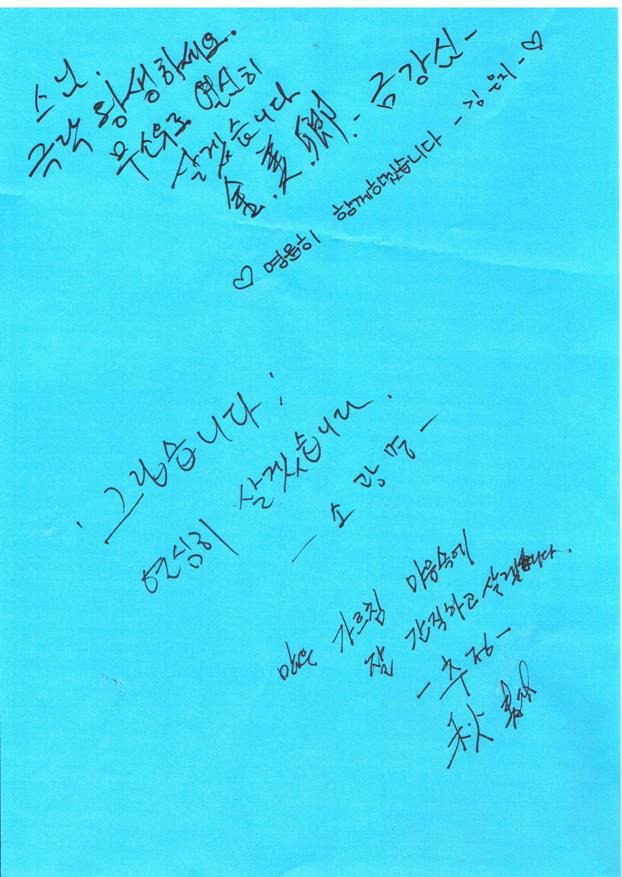 스님.
극락 왕생하세요.
무소유로 열심히
살겠습니다
- 금강신 -
♡ 영원히 함께하겠습니다 - 김윤지 - ♡
그립습니다;
열심히 살겠습니다.
- 소광명 -
많은 가르침 마음속에
잘 간직하고 살겠습니다.
- 추정 -
秋